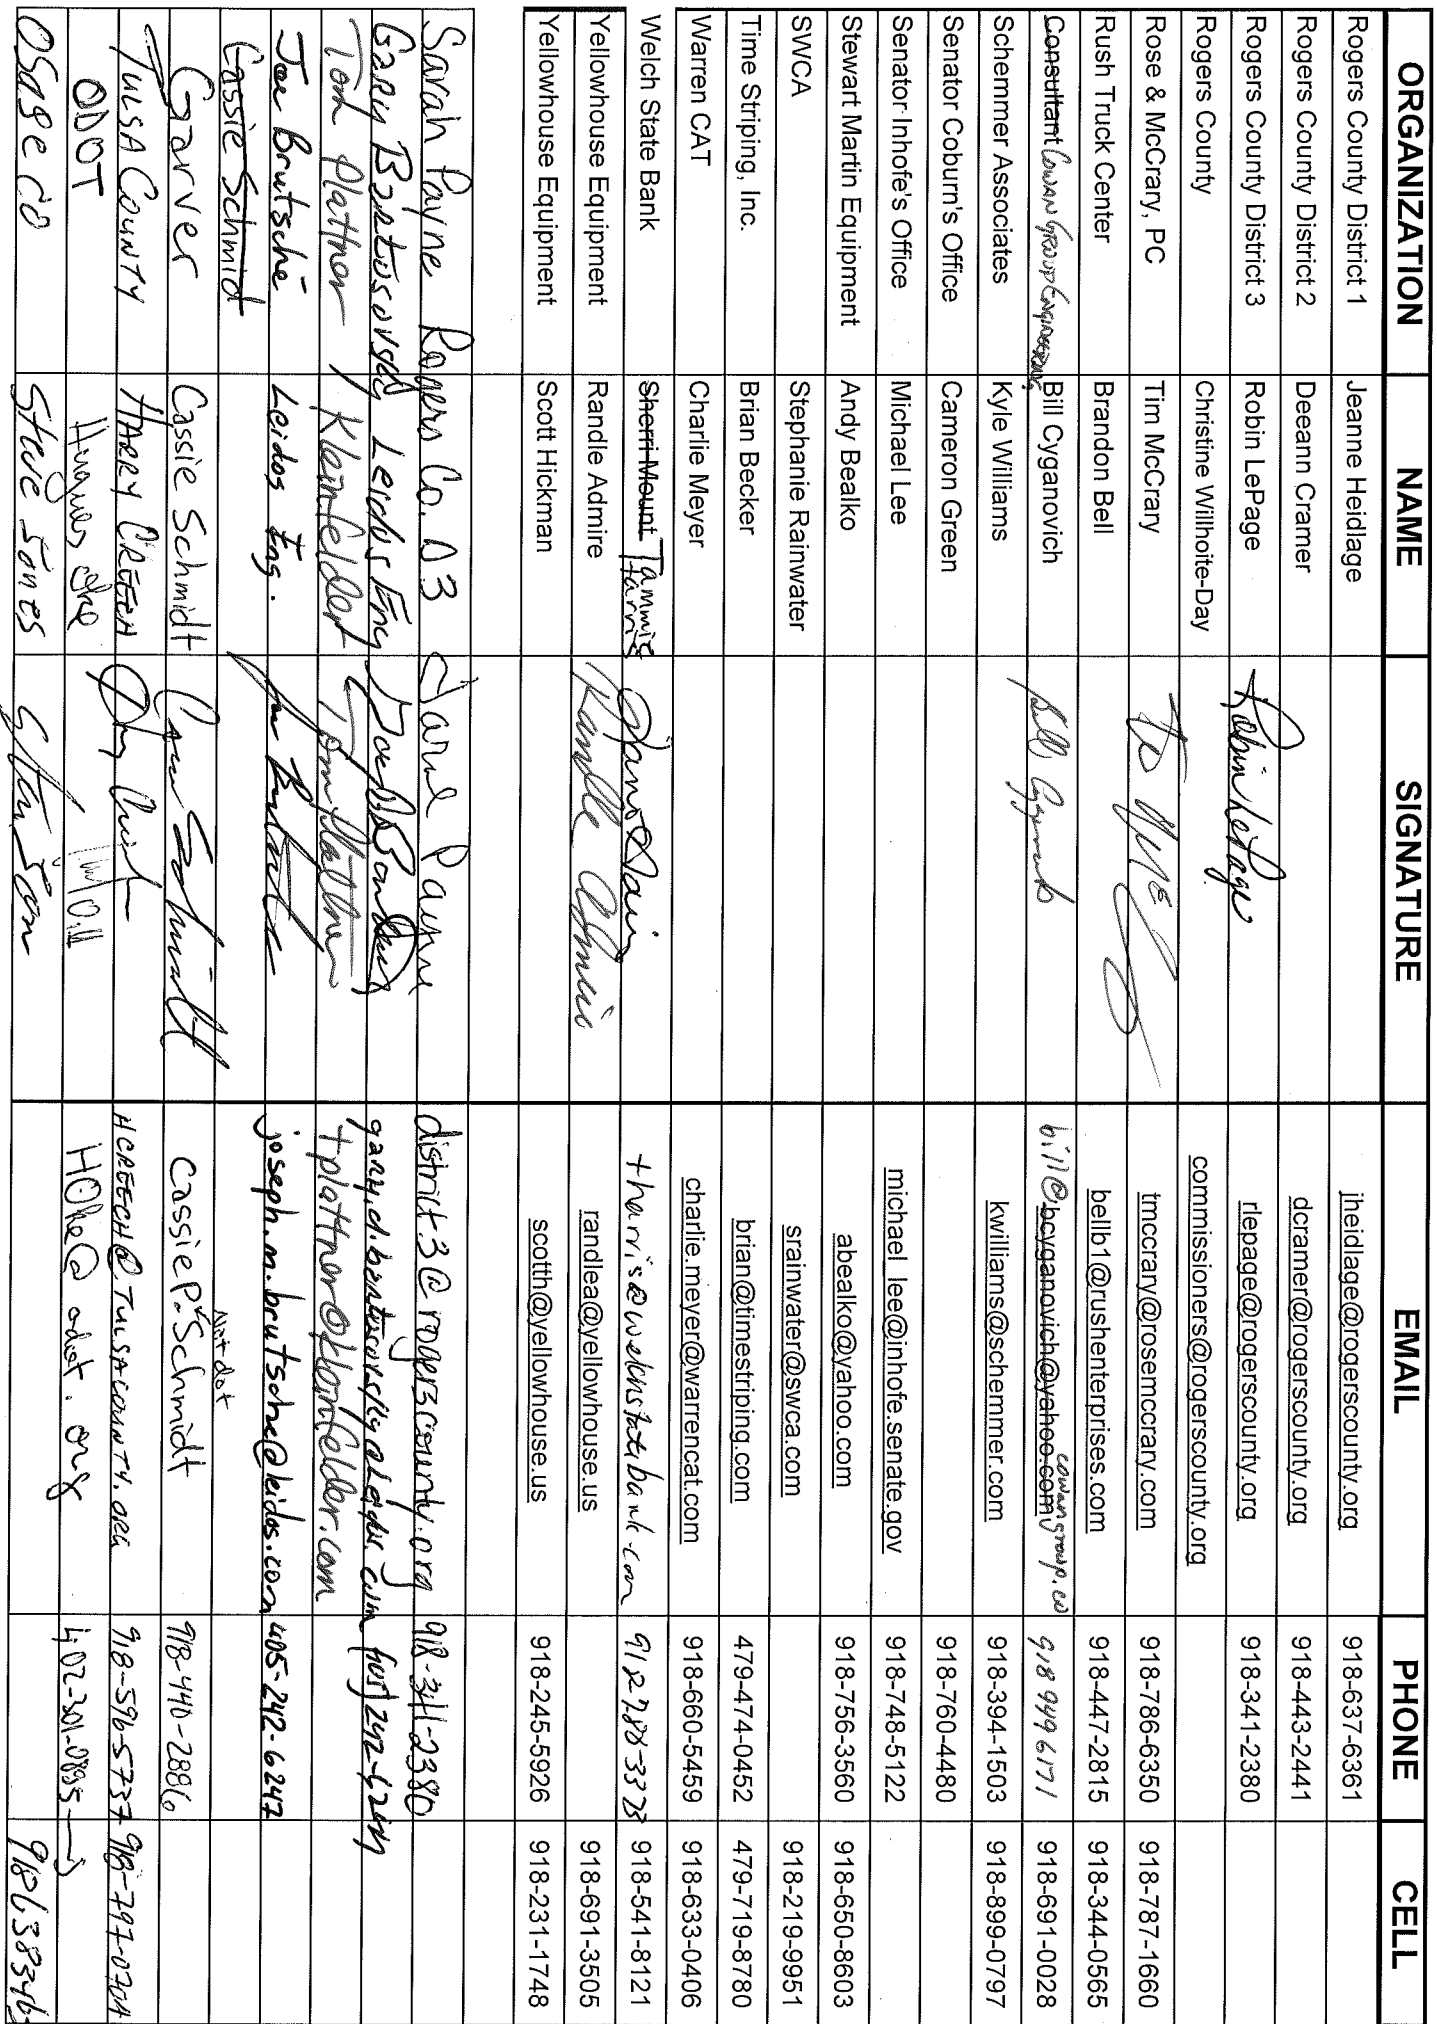 ORGANIZATION NAME SIGNATURE EMAIL PHONE CELL
Rogers County District 1 Jeanne Heidlage jheidlage@rogerscounty.org 918-637-6361
Rogers County District 2 Deeann Cramer dcramer@rogerscounty.org 918-443-2441
Rogers County District 3 Robin LePage Robin LePage rlepage@rogerscounty.org 918-341-2380
Rogers County Christine Willhoite-Day commissioners@rogerscounty.org
Rose & McCrary, PC Tim McCrary tmccrary@rosemccrary.com 918-786-6350 918-787-1660
Rush Truck Center Brandon Bell bellb1@rushenterprises.com 918-447-2815 918-344-0565
Consultant Cowan Group Engineering Bill Cyganovich Bill Cyganovich bill@bcyganovich@yahoo.com cowangroup.co 918 949 6171 918-691-0028
Schemmer Associates Kyle Williams kwilliams@schemmer.com 918-394-1503 918-899-0797
Senator Coburn's Office Cameron Green 918-760-4480
Senator Inhofe's Office Michael Lee michael_lee@inhofe.senate.gov 918-748-5122
Stewart Martin Equipment Andy Bealko abealko@yahoo.com 918-756-3560 918-650-8603
SWCA Stephanie Rainwater srainwater@swca.com 918-219-9951
Time Striping, Inc. Brian Becker brian@timestriping.com 479-474-0452 479-719-8780
Warren CAT Charlie Meyer charlie.meyer@warrencat.com 918-660-5459 918-633-0406
Welch State Bank Sherri Mount Tammie Harris tharris@welchstatebank.com 918-541-8121
Yellowhouse Equipment Randle Admire Randle Admire randlea@yellowhouse.us 918-691-3505
Yellowhouse Equipment Scott Hickman scotth@yellowhouse.us 918-245-5926 918-231-1748
Sarah Payne Rogers Co. D3 Sarah Payne district3@rogerscounty.org 918-341-2380
Gary Leidos Eng
Tom Plattner / Kleinfelder Tom Plattner tplattner@kleinfelder.com
Joe Brutsché Leidos Eng. joseph.m.brutsche@leidos.com 405-242-6247
Cassie Schmid
Garver Cassie Schmidt Cassie Schmidt CassieP-Schmidt Not dot 918-440-2886
Tulsa County HARRY CREECH HCREECH@TULSACOUNTY.ORG 918-596-5737 918-797-0704
ODOT HOke@odot.org 402-301-0895
Osage Co Steve Jones